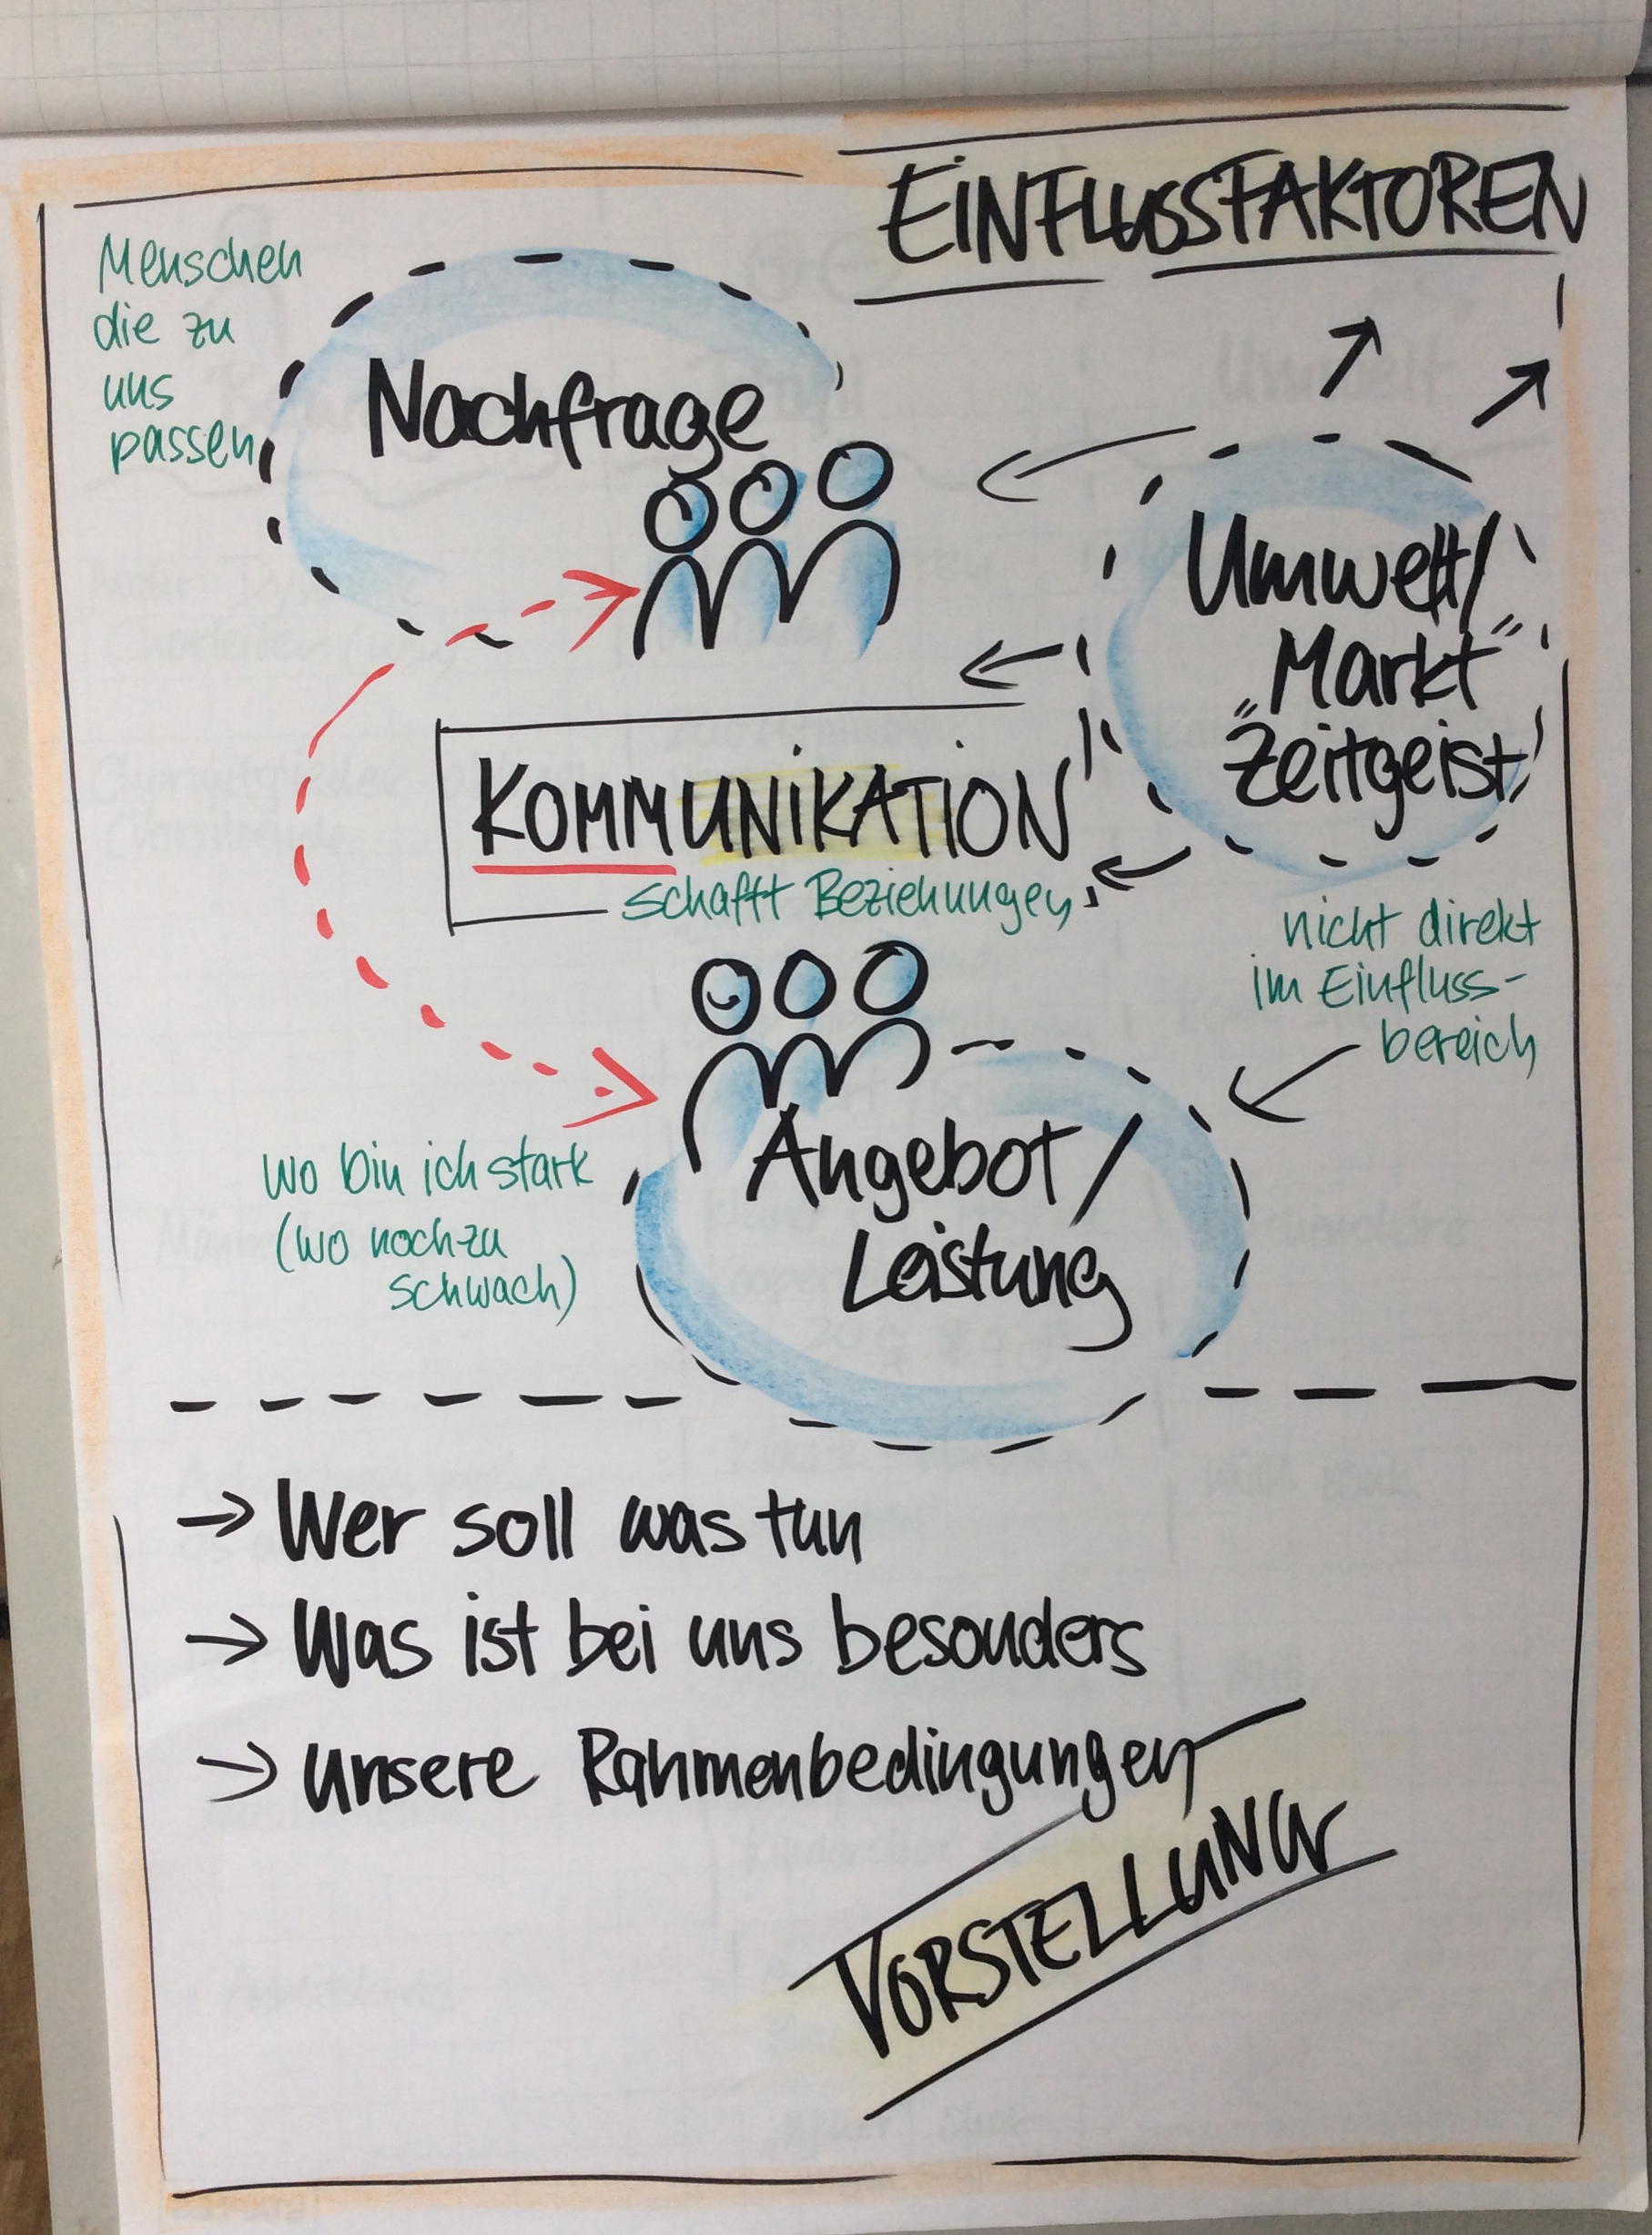 EINFLUSSFAKTOREN
Menschen
die zu
uns
passen
Nachfrage
Umwelt/
„Markt"
Zeitgeist
KOMMUNIKATION
schafft Beziehungen
nicht direkt
im Einfluss-
bereich
wo bin ich stark
(wo noch zu
schwach)
Angebot/
Leistung
→ Wer soll was tun
→ Was ist bei uns besonders
→ unsere Rahmenbedingungen
VORSTELLUNG